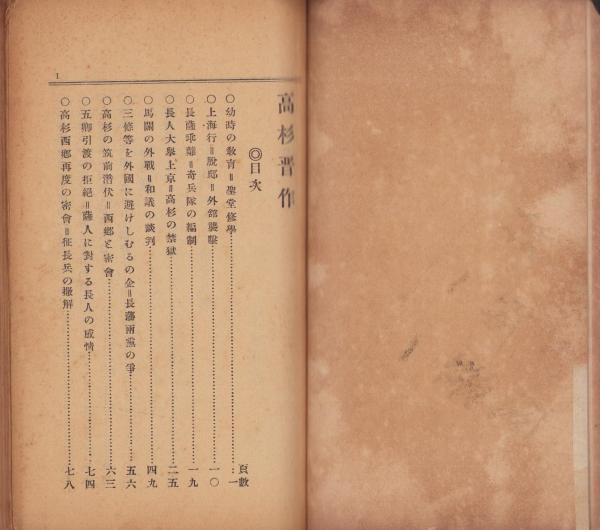 高杉晋作
◎目次
頁數
○幼時の敎育＝聖堂修學……一
○上海行＝脫邸＝外館襲擊……一〇
○長薩乖離＝奇兵隊の編制……一九
○長人大擧上京＝高杉の禁獄……二五
○馬關の外戰＝和議の談判……四九
○三條等を外國に避けしむるの企＝長藩兩黨の爭……五六
○高杉の筑前潜伏＝西鄕と密會……六三
○五卿引渡の拒絕＝薩人に對する長人の感情……七四
○高杉西鄕再度の密會＝征長兵の撤解……七八
1